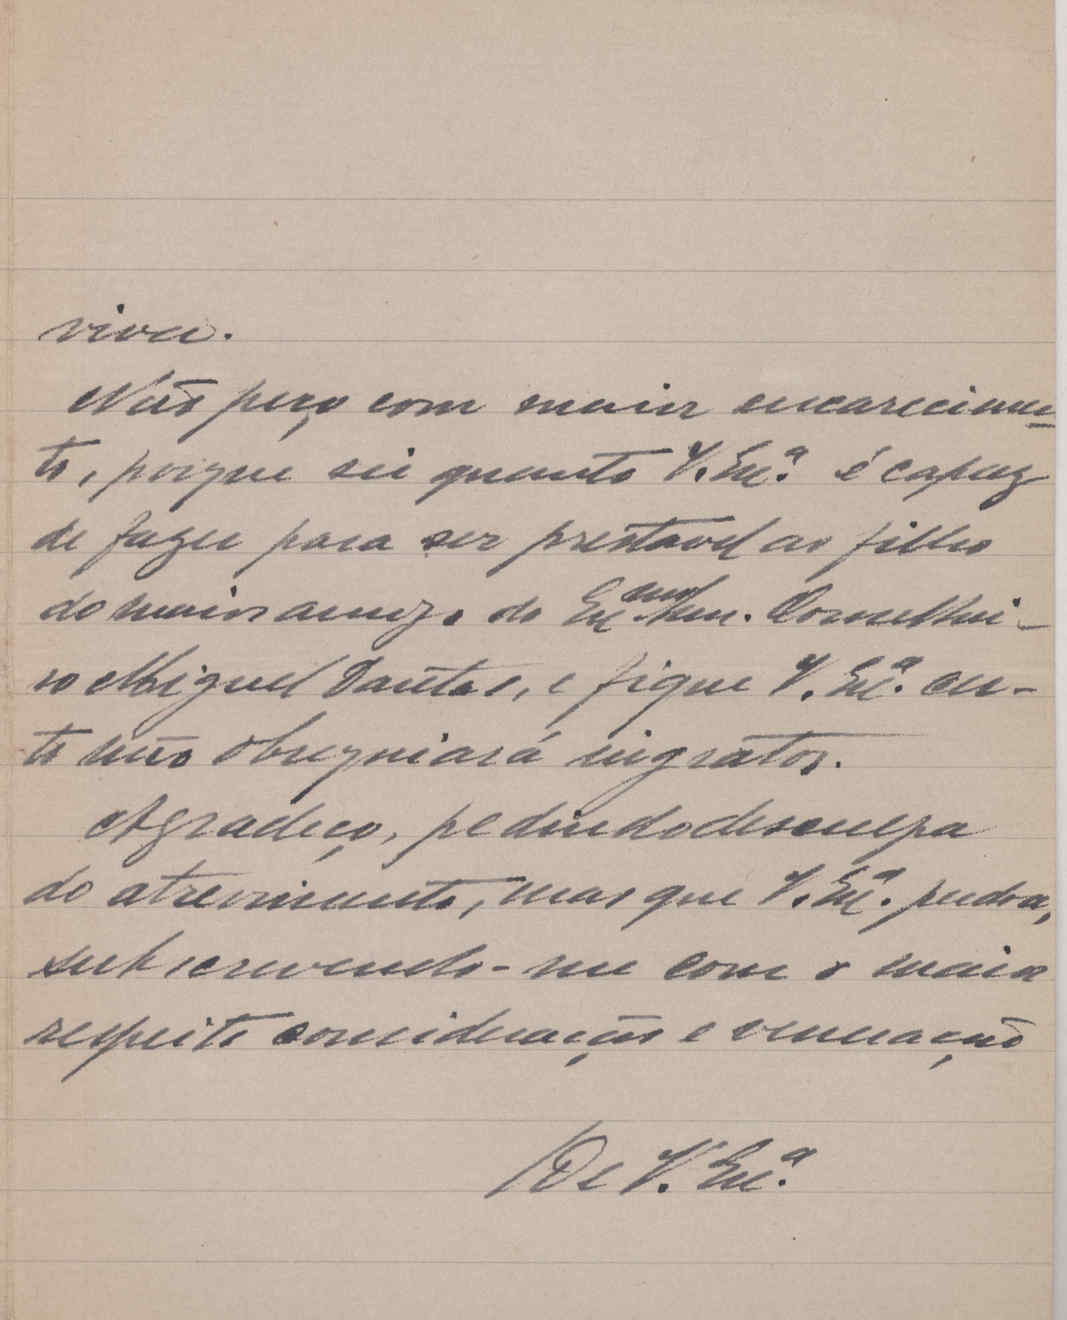 viva.
Não peço com maior encarecimen-
to, porque sei quanto V. Exª. é capaz
de fazer para ser prestavel ao filho
do maior amigo do Exmo Snr. Conselhei-
ro Miguel Dantas, e fique V. Exª. cer-
to não obsequiará ingratos.
Agradeço, pedindo desculpa
do atrevimento, mas que V. Exª. perdoa,
subscrevendo-me com o maior
respeito consideração e veneração
De V. Exª.